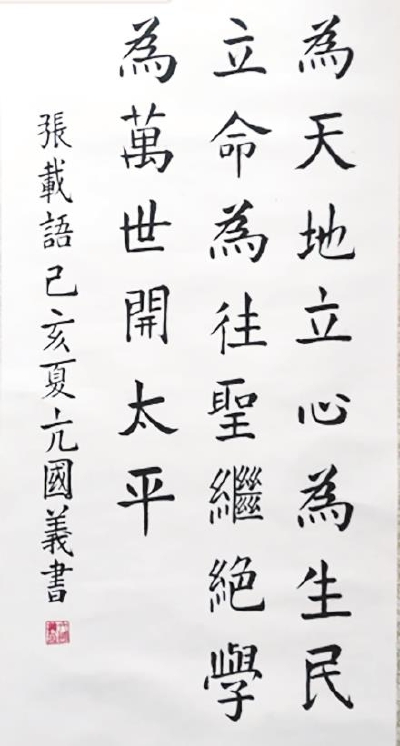 為天地立心為生民
立命為往聖繼絕學
為萬世開太平
張載語己亥夏亢國義書